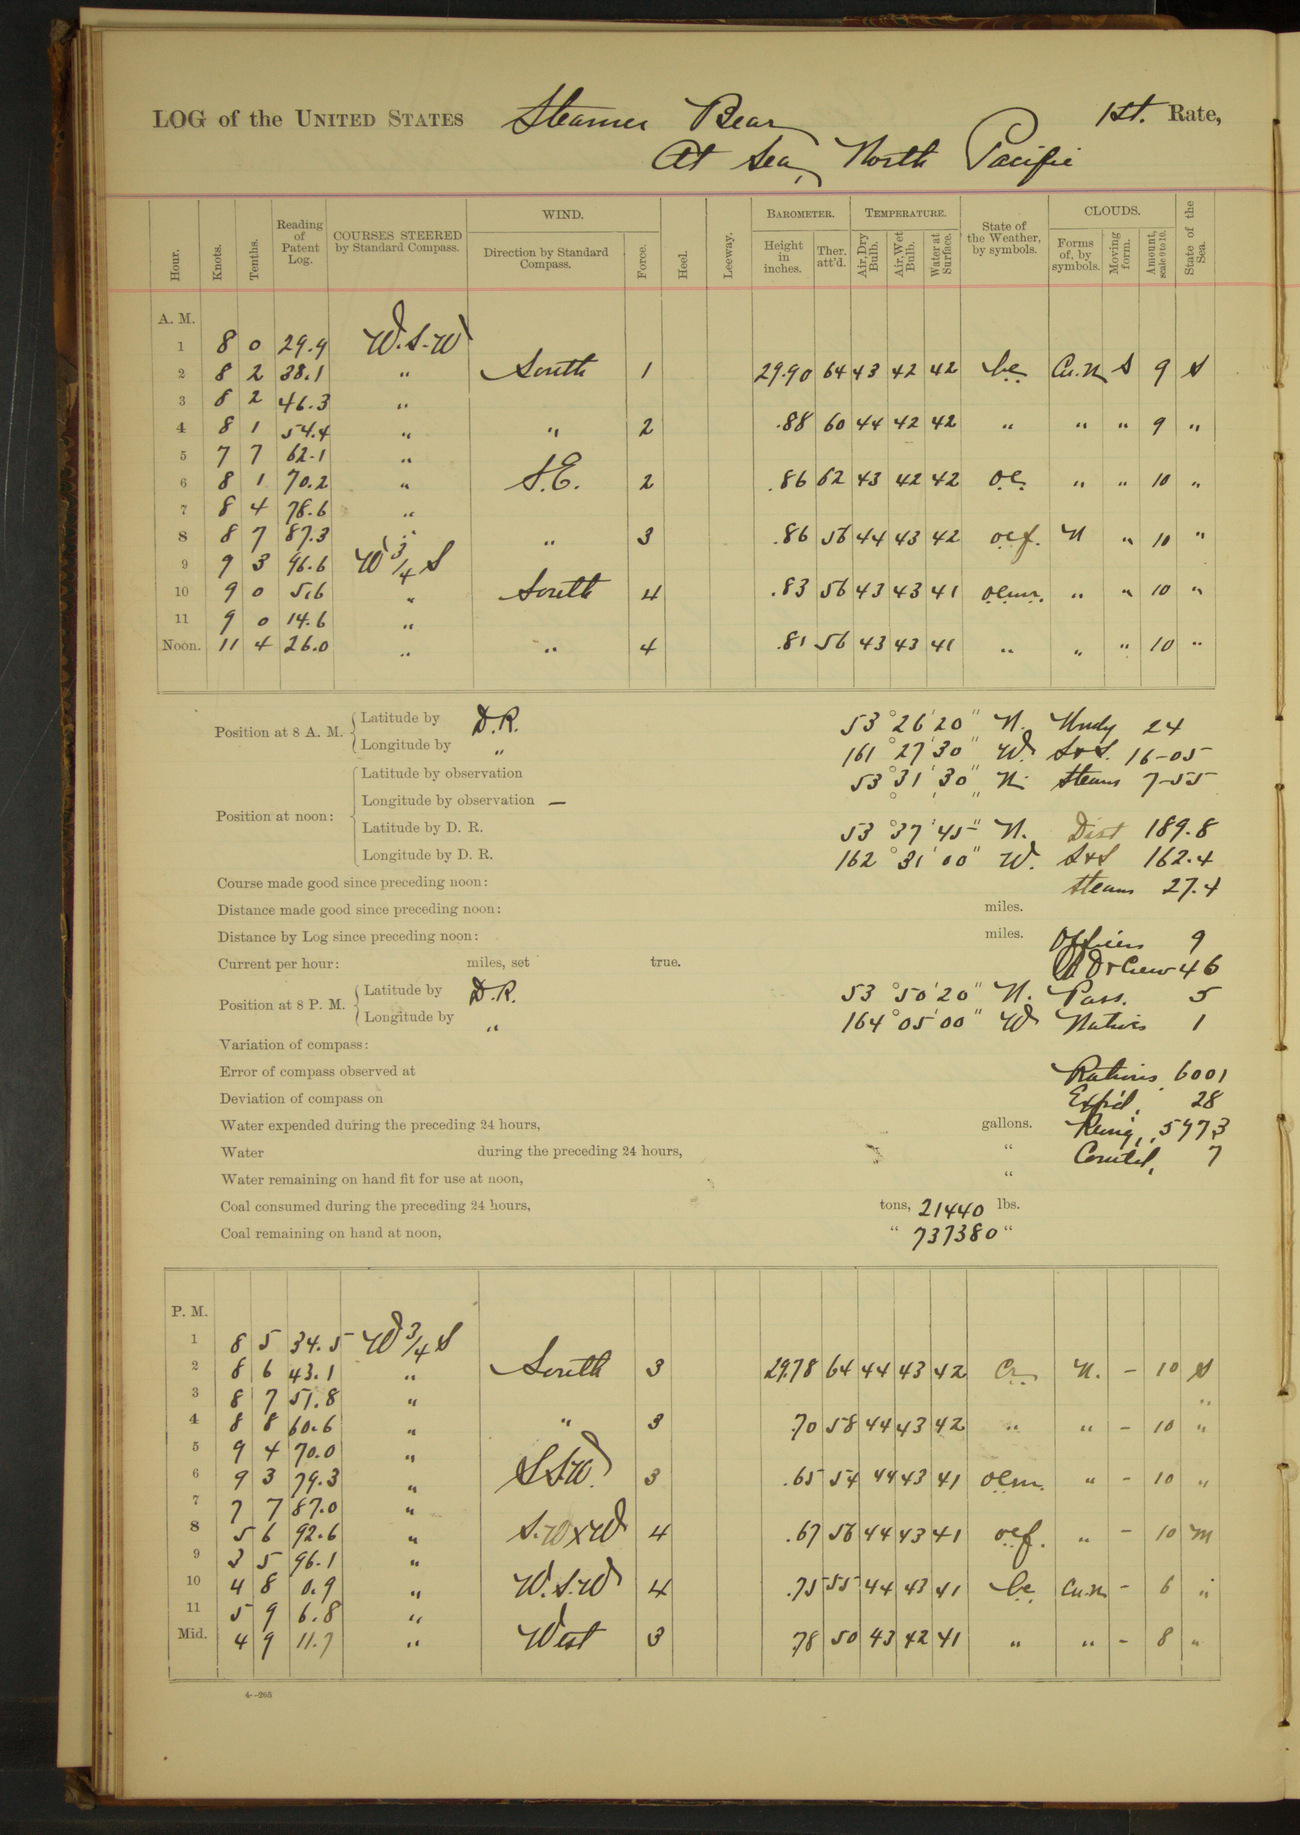 LOG of the UNITED STATES Steamer Bear 1st. Rate,
At Sea, North Pacific
Hour. Knots. Tenths. Reading of Patent Log. COURSES STEERED by Standard Compass. WIND. Direction by Standard Compass. Force. Heel. Leeway. BAROMETER. Height in inches. Ther. att'd. TEMPERATURE. Air, Dry Bulb. Air, Wet Bulb. Water at Surface. State of the Weather, by symbols. CLOUDS. Forms of, by symbols. Moving form. Amount, scale 0 to 10. State of the Sea.
A. M.
1 8 0 29.9 W.S.W
2 8 2 38.1 " South 1 29.90 64 43 42 42 bc Cu.N S 9 S
3 8 2 46.3 "
4 8 1 54.4 " " 2 .88 60 44 42 42 " " " 9 "
5 7 7 62.1 "
6 8 1 70.2 " S.E. 2 .86 62 43 42 42 oc. " " 10 "
7 8 4 78.6 "
8 8 7 87.3 " " 3 .86 56 44 43 42 ocf. N " 10 "
9 9 3 96.6 W 3/4 S
10 9 0 5.6 " South 4 .83 56 43 43 41 ocm. " " 10 "
11 9 0 14.6 "
Noon. 11 4 26.0 " " 4 .81 56 43 43 41 " " " 10 "
Position at 8 A. M. Latitude by D.R. 53 ° 26 ' 20 " N. Undy 24
Longitude by " 161 ° 27 ' 30 " W. S&S. 16-05
Position at noon: Latitude by observation 53 ° 31 ' 30 " N. Steam 7-55
Longitude by observation — ° ' "
Latitude by D. R. 53 ° 37 ' 45 " N. Dist 189.8
Longitude by D. R. 162 ° 31 ' 00 " W. S&S 162.4
Course made good since preceding noon: Steam 27.4
Distance made good since preceding noon: miles.
Distance by Log since preceding noon: miles. Officers 9
Current per hour: miles, set true. & Crew 46
Position at 8 P. M. Latitude by D.R. 53 ° 50 ' 20 " N. Pass. 5
Longitude by " 164 ° 05 ' 00 " W Natives 1
Variation of compass:
Error of compass observed at Rations 6001
Deviation of compass on Exp'd, 28
Water expended during the preceding 24 hours, gallons. 5973
Water during the preceding 24 hours, " 7
Water remaining on hand fit for use at noon, "
Coal consumed during the preceding 24 hours, tons, 21440 lbs.
Coal remaining on hand at noon, " 737380 "
P. M.
1 8 5 34.5 W 3/4 S
2 8 6 43.1 " South 3 29.78 64 44 43 42 N. - 10 S
3 8 7 51.8 " "
4 8 8 60.6 " " 3 .70 58 44 43 42 " " - 10 "
5 9 4 70.0 "
6 9 3 79.3 " SSW. 3 .65 54 44 43 41 ocm. " - 10 "
7 7 7 87.0 "
8 5 6 92.6 " S.W x W 4 .67 56 44 43 41 ocf. " - 10 m
9 3 5 96.1 "
10 4 8 0.9 " W.S.W 4 .75 55 44 43 41 bc Cu.N - 6 "
11 5 9 6.8 "
Mid. 4 9 11.7 " West 3 .78 50 43 42 41 " " - 8 "
4--265